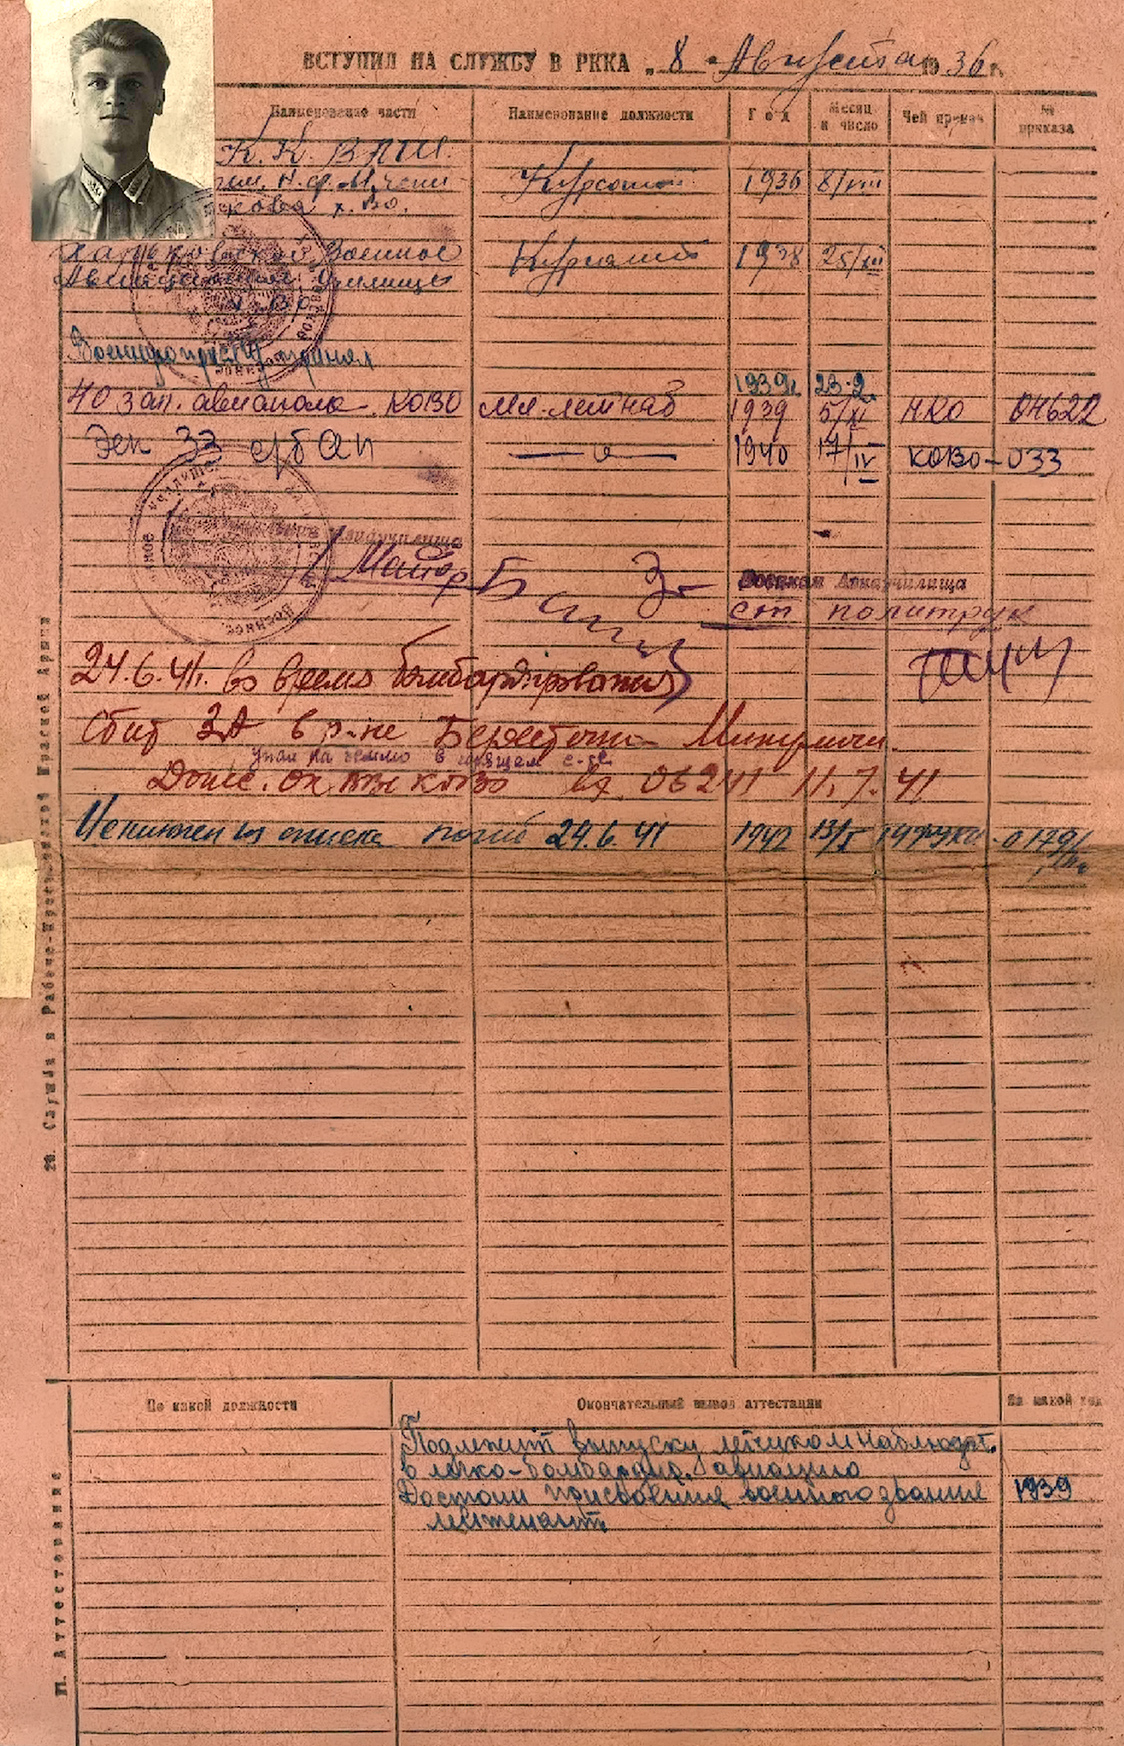 ВСТУПИЛ НА СЛУЖБУ В РККА „ 8 " Августа 1936 г.
Наименование части Наименование должности Год Месяц и число Чей приказ № приказа
К. К. ВАШ.
Курсант 1936 8/VIII
х. во.
Харьковское Военное Курсант 1938 25/XII
Авиационное Училище
Военную присягу принял 1939г. 23.2.
40 зап. авиаполк КОВО мл. летнаб 1939 5/XI НКО 04622
33 сбап — " — 1940 17/IV КОВО-033
Авиаучилища
Майор
Военком Авиаучилища
ст политрук
24.6.41г. во время бомбардирования
Сбит ЗА в р-не Берестечко Микуличи.
упал на землю в горящем с-те
Донес. ОК ВВС КОВО вх. 06241 11.7.41
Исключен из списка погиб 24.6.41 1942 13/I
20. Служба в Рабоче-Крестьянской Красной Армии
По какой должности Окончательный вывод аттестации За какой год
Подлежит выпуску летчиком наблюдат.
в легко-бомбардир. авиацию
Достоин присвоения военного звания 1939
лейтенант.
21. Аттестование